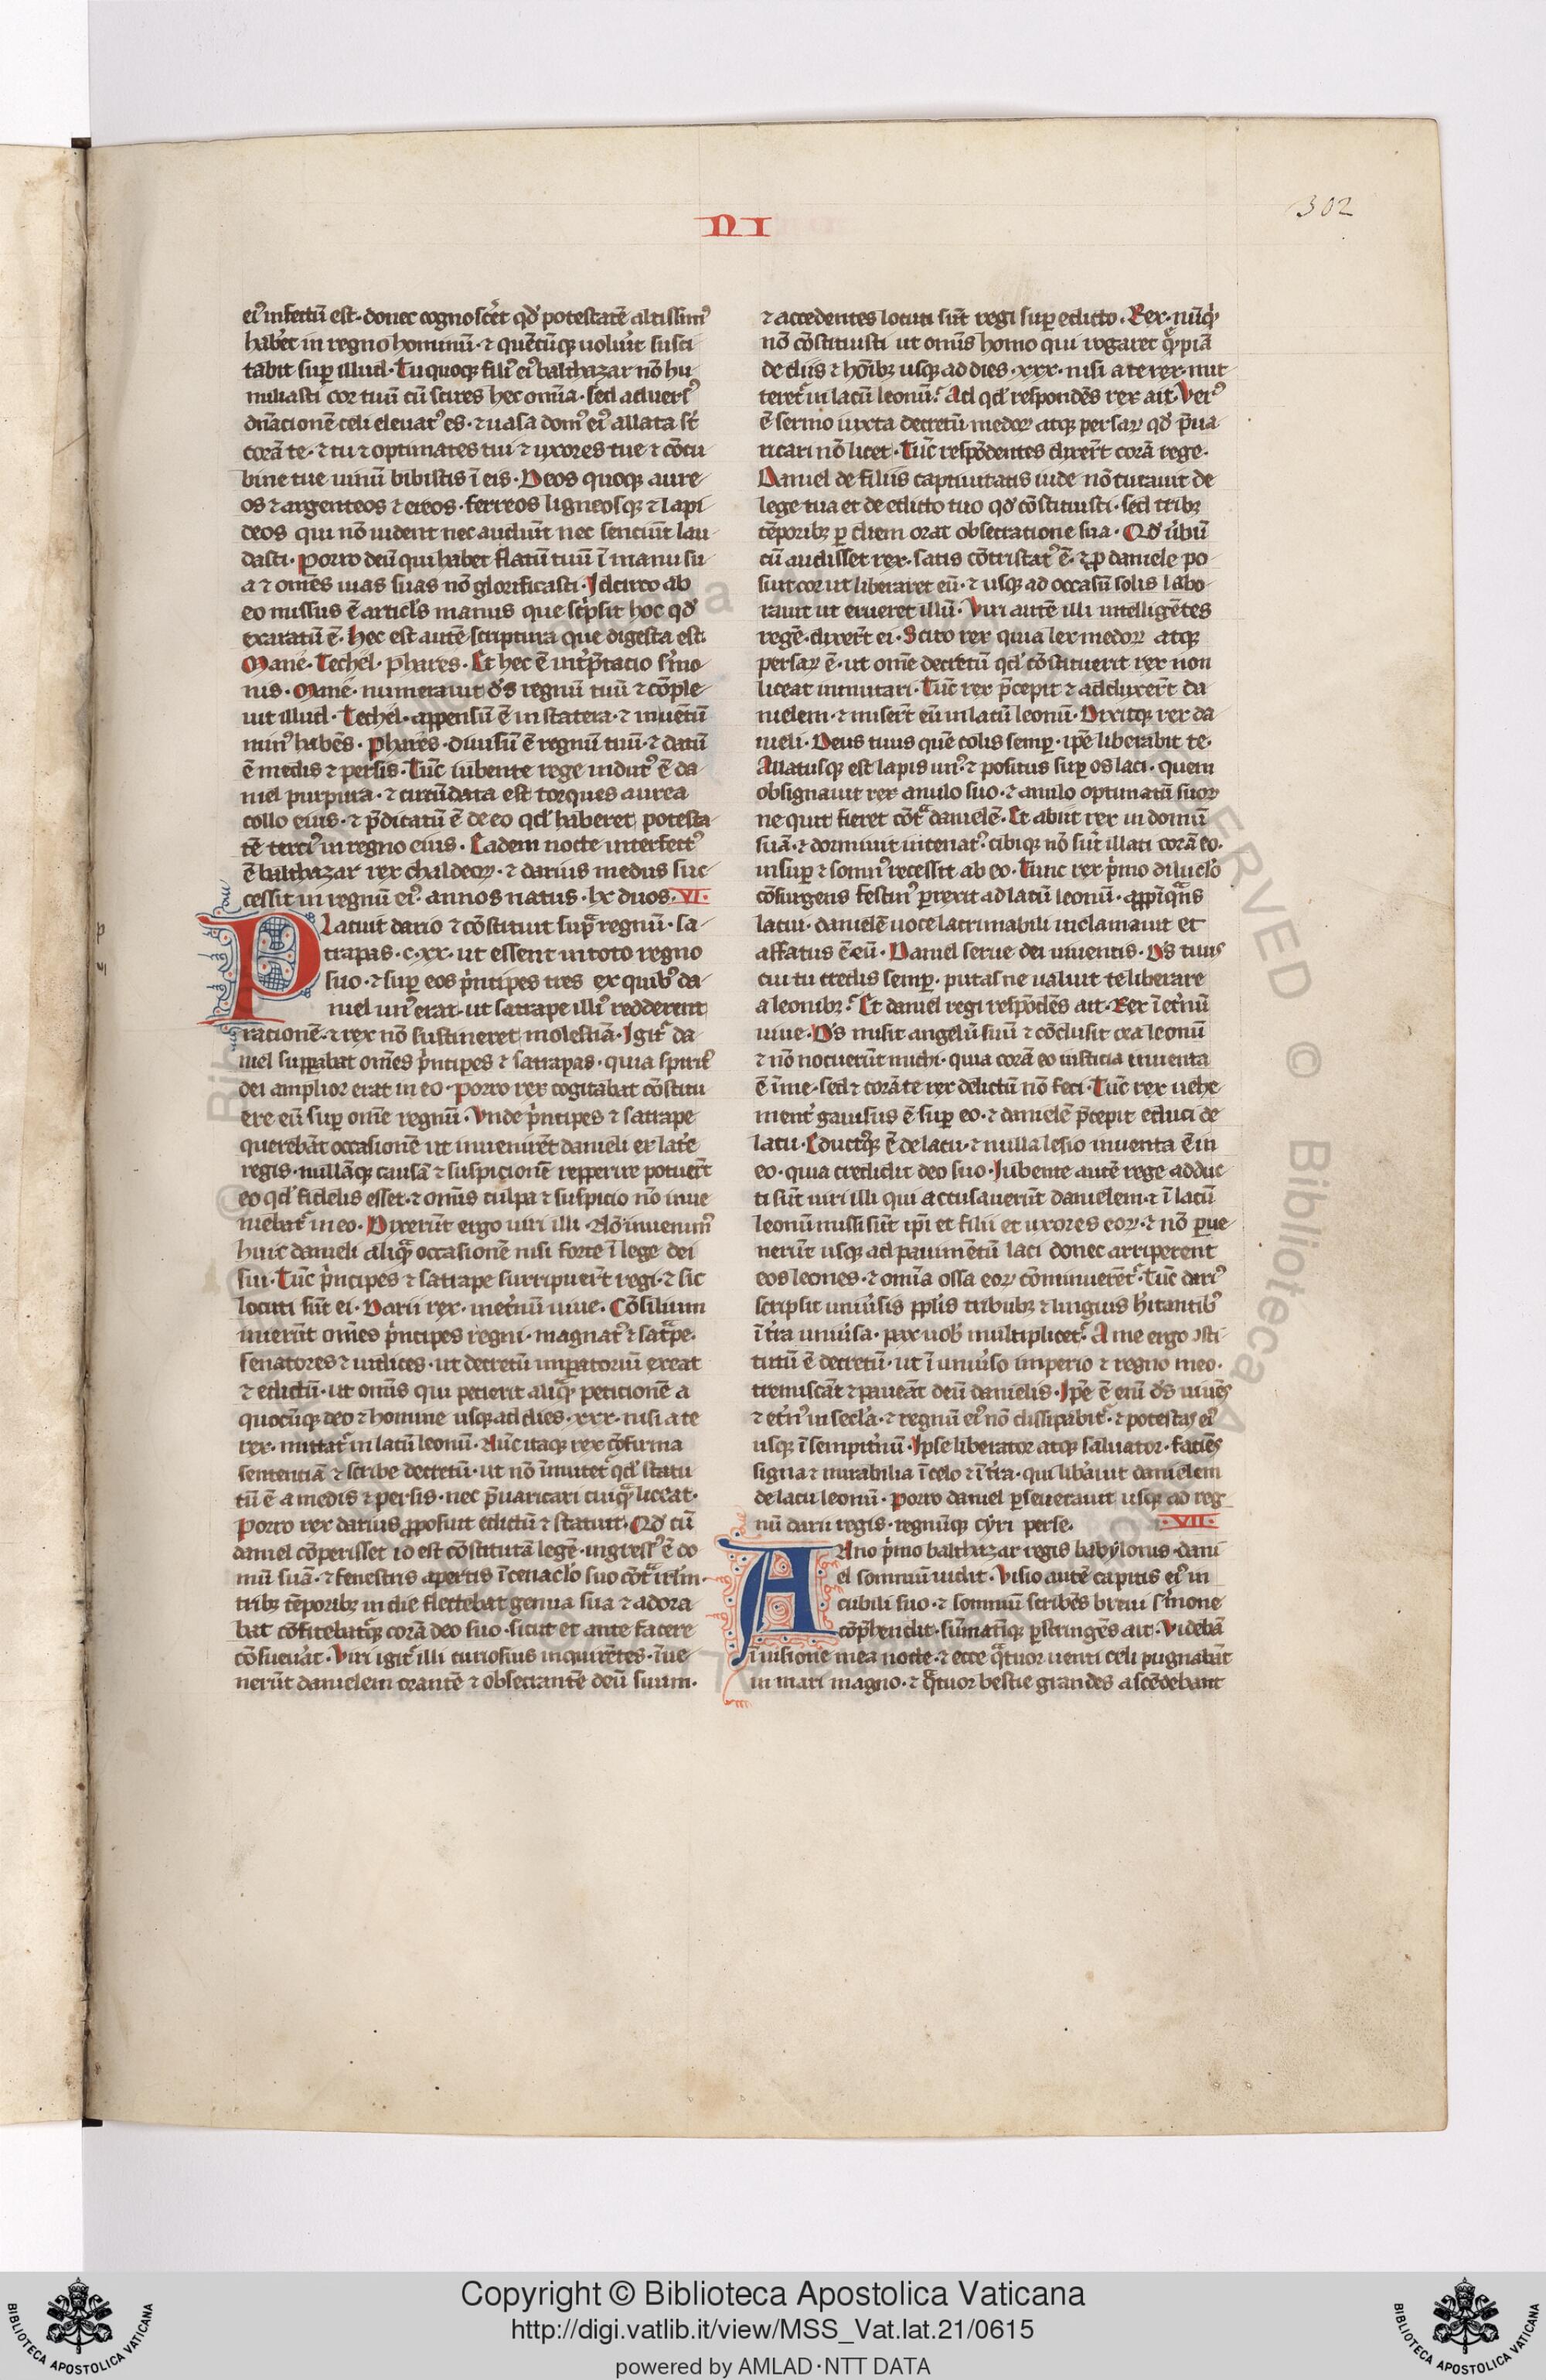 NI
302
eiꝰ infectū est· donec cognoscᷣet qd̓ potestatē altissimꝰ
habꝫet in regno hominū· ⁊ quēcūqꝫ uoluᷣit susci
tabit suꝑ illud· Tu quoqꝫ filiꝰ eiꝰ balthazar nō hu
miliasti cor tuū cū scires hec om̄ia· sed aduersꝰ
dn̄acionē celi eleuatꝰ es· ⁊ uasa domꝰ eiꝰ allata st̄
corā te· ⁊ tu ⁊ optimates tui ⁊ uxores tue ⁊ cōcu
bine tue uinū bibistis ī eis· Deos quoqꝫ aure
os ⁊ argenteos ⁊ ereos· ferreos ligneosqꝫ ⁊ lapi
deos qui nō uident nec audiūt nec senciūt lau
dasti· Porro deū qui habet flatū tuū ī manu su
a ⁊ om̄es uias suas nō glorificasti· Idcirco ab
eo missus ē articls̄ manus que scͥpsit hoc qd̓
exaratū ē· Hec est autē scriptura que digesta est
Mane· Techel· phares· Et hec ē int̓p̄tacio s̓mo
nis· Mane· numerauit ds̄ regnū tuū ⁊ cōple
uit illud· Techel· appensū ē in statera· ⁊ inuētū
minꝰ habēs· Phares· diuisū ē regnū tuū· ⁊ datū
ē medis ⁊ persis· Tūc iubente rege indutꝰ ē da
niel purpura· ⁊ circūdata est torques aurea
collo eius· ⁊ p̄dicatū ē de eo qd̓ haberet potesta
tē tercꝰ in regno eius· Eadem nocte interfectꝰ
ē balthazar rex chaldeoꝝ· ⁊ darius medus suc
cessit in regnū eiꝰ annos natus· lx duos· VI·
Placuit dario ⁊ cōstituit supᷓ regnū· sa
trapas· c·xx· ut essent in toto regno
suo· ⁊ suꝑ eos pͥncipes tres ex quibꝰ da
niel unꝰ erat· ut satrape illiꝰ redderent
rationē· ⁊ rex nō sustineret molestiā· Igit᷑ da
niel suꝑabat om̄es pͥncipes ⁊ satrapas· quia spiritꝰ
dei amplior erat in eo· Porro rex cogitabat cōstitu
ere eū suꝑ om̄e regnū· Vnde pͥncipes ⁊ satrape
querebāt occasionē ut inuenirēt danieli ex lat̓e
regis· nullāqꝫ causā ⁊ suspicionē repperire potuer̄t
eo qd̓ fidelis esset· ⁊ om̄is culpa ⁊ suspicio nō inue
niebat᷑ in eo· Dixerūt ergo uiri illi· Nō inuenimꝰ
huic danieli aliqᷓ occasionē nisi forte ī lege dei
sui· Tūc pͥncipes ⁊ satrape surripuer̄t regi· ⁊ sic
locuti sūt ei· Darii rex· inet̓nū uiue· Cōsilium
inierūt om̄es pͥncipes regni· magnatꝰ ⁊ satᷓpe·
senatores ⁊ iudices· ut decretū imꝑatoriū exeat
⁊ edictū· ut om̄is qui petierit aliqᷓ peticionē a
quocūqꝫ deo ⁊ homine usqꝫ ad dies· xxx· nisi a te
rex· mittat᷑ in lacū leonū· Nūc itaqꝫ rex cōfirma
sententiā ⁊ scribe decretū· ut nō īmutet᷑ qd̓ statu
tū ē a medis ⁊ persis· nec p̄uaricari cuiqᷓ liceat·
Porro rex darius ꝓposuit edictū ⁊ statuit· Qd̓ cū
daniel cōperisset id est cōstitutā legē· ingressꝰ ē do
mū suā· ⁊ fenestris apertis ī cenaclo̓ suo cōtᷓ irlm̄·
tribꝫ tēporibꝫ in die flectebat genua sua ⁊ adora
bat cōfitebat᷑qꝫ corā deo suo· sicut et ante facere
cōsueuᷣat· Viri igit᷑ illi curiosius inquirētes· īue
nerūt danielem orantē ⁊ obsecrantē deū suum·
⁊ accedentes locuti sūt regi suꝑ edicto· Rex· nūqͥd
nō cōstituisti ut om̄is homo qui rogaret qᷓpiā
de diis ⁊ hōibꝫ usqꝫ ad dies· xxx· nisi a te rex· mit
teret᷑ in lacū leonū· Ad qd̓ respondēs rex ait· Verꝰ
ē sermo iuxta decretū medoꝝ atqꝫ persaꝝ qd̓ p̄ua
ricari nō licet· Tūc respōdentes dixer̄t corā rege·
Daniel de filiis captiuitatis iude nō curauit de
lege tua et de edicto tuo qd̓ cōstituisti· sed tribꝫ
tēporibꝫ ꝑ diem orat obsecratione sua· Qd̓ u̓bū
cū audisset rex· satis cōtristatꝰ ē· ⁊ ꝓ daniele po
suit cor ut liberaret eū· ⁊ usqꝫ ad occasū solis labo
rauit ut erueret illū· Viri autē illi intelligētes
regē· dixer̄t ei· Scito rex quia lex medoꝝ atqꝫ
persaꝝ ē· ut om̄e decretū qd̓ cōstituerit rex non
liceat inmutari· Tūc rex p̄cepit ⁊ adduxer̄t da
nielem· ⁊ miser̄t eū in lacū leonū· Dixitqꝫ rex da
nieli· Deus tuus quē colis semꝑ· ip̄e liberabit te·
Allatusqꝫ est lapis unꝰ· ⁊ positus suꝑ os laci· quem
obsignauit rex anulo suo· ⁊ anulo optimatū suoꝝ
ne quit fieret cōtᷓ danielē· Et abiit rex in domū
suā· ⁊ dormiuit incenatꝰ· cibiqꝫ nō sūt illati corā eo·
insuꝑ ⁊ somnꝰ recessit ab eo· Tunc rex pͥmo diluclo̓
cōsurgens festinꝰ ꝑrexit ad lacū leonū· appīqᷓns
lacui· danielē uoce lacrimabili inclamauit et
affatus ē eū· Daniel serue dei uiuentis· Ds̄ tuus
cui tu credis semꝑ· putasne ualuit te liberare
a leonibꝫ· Et daniel regi respōdēs ait· Rex ī et̓nū
uiue· Ds̄ misit angelū suū ⁊ cōclusit ora leonū
⁊ nō nocuerūt michi· quia corā eo iusticia inuenta
ē ī me· sed ⁊ corā te rex delictū nō feci· Tūc rex uehe
ment̓ gauisus ē suꝑ eo· ⁊ danielē p̄cepit educi de
lacu· Eductꝰqꝫ ē de lacu· ⁊ nulla lesio inuenta ē in
eo· quia credidit deo suo· Iubente autē rege adduc
ti sūt uiri illi qui accusauerūt danielem· ⁊ ī lacū
leonū missi sūt ip̄i et filii et uxores eoꝝ· ⁊ nō ꝑue
nerūt usqꝫ ad pauimētū laci donec arriperent
eos leones· ⁊ om̄ia ossa eoꝝ cōminuerēt᷑· Tūc dariꝰ
scripsit uniu̓sis ppl̓is tribubꝫ ⁊ linguis hi̓tantibꝰ
ī t̓ra uniu̓sa· pax uob̓ multiplicet᷑· A me ergo ꝯsti
tutū ē decretū· ut ī uniu̓so imperio ⁊ regno meo·
tremiscāt ⁊ paueāt deū danielis· Ip̄e ē eni̅ ds̄ uiuēs
⁊ et̓nꝰ in secl̓a· ⁊ regnū eiꝰ nō dissipabit᷑· ⁊ potestas eiꝰ
usqꝫ ī sempit̓nū· Ipse liberator atqꝫ saluator· faciēs
signa ⁊ mirabilia ī celo ⁊ ī t̓ra· qui lib̓auit danielem
de lacu leonū· Porro daniel ꝑseuerauit usqꝫ ad reg
nū darii regis· regnūqꝫ cyri perse· ·VII·
Ano pͥmo balthazar regis babylonis· dani
el somniū uidit· Visio autē capitis eiꝰ in
cubili suo· ⁊ somniū scribēs breui s̓mone
cōp̄hendit· sūmatīqꝫ ꝑstringēs ait· Videbā
ī uisione mea nocte· ⁊ ecce qᷓtuor uenti celi pugnabāt
in mari magno· ⁊ qᷓtuor bestie grandes ascēdebant
Copyright © Biblioteca Apostolica Vaticana
http://digi.vatlib.it/view/MSS_Vat.lat.21/0615
powered by AMLAD·NTT DATA
BIBLIOTECA APOSTOLICA VATICANA
BIBLIOTECA APOSTOLICA VATICANA